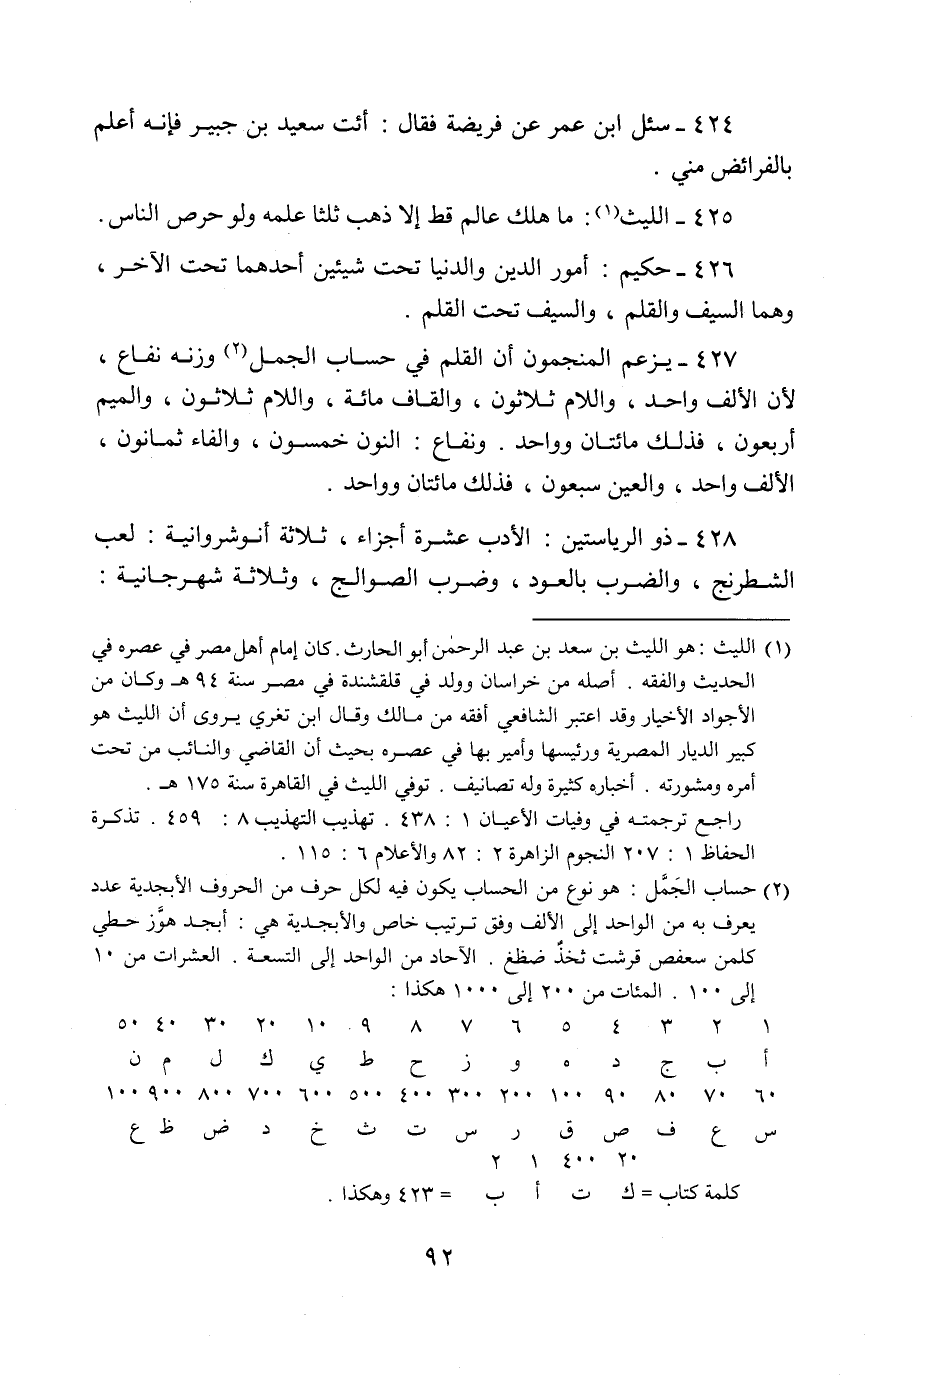 ٤٢٤ ـ سئل ابن عمر عن فريضة فقال : أئت سعيد بن جبير فإنه أعلم
بالفرائض مني .
٤٢٥ ـ الليث(١): ما هلك عالم قط إلا ذهب ثلثا علمه ولو حرص الناس.
٤٢٦ ـ حكيم : أمور الدين والدنيا تحت شيئين أحدهما تحت الآخر ،
وهما السيف والقلم ، والسيف تحت القلم .
٤٢٧ ـ يزعم المنجمون أن القلم في حساب الجمل(٢) وزنه نفاع ،
لأن الألف واحد ، واللام ثلاثون ، والقاف مائة ، واللام ثلاثون ، والميم
أربعون ، فذلك مائتان وواحد . ونفاع : النون خمسون ، والفاء ثمانون ،
الألف واحد ، والعين سبعون ، فذلك مائتان وواحد .
٤٢٨ ـ ذو الرياستين : الأدب عشرة أجزاء ، ثلاثة أنوشروانية : لعب
الشطرنج ، والضرب بالعود ، وضرب الصوالج ، وثلاثة شهرجانية :
(١) الليث : هو الليث بن سعد بن عبد الرحمٰن أبو الحارث. كان إمام أهل مصر في عصره في
الحديث والفقه . أصله من خراسان وولد في قلقشندة في مصر سنة ٩٤ هـ وكان من
الأجواد الأخيار وقد اعتبر الشافعي أفقه من مالك وقال ابن تغري يروى أن الليث هو
كبير الديار المصرية ورئيسها وأمير بها في عصره بحيث أن القاضي والنائب من تحت
أمره ومشورته . أخباره كثيرة وله تصانيف . توفي الليث في القاهرة سنة ١٧٥ هـ .
راجع ترجمته في وفيات الأعيان ١ : ٤٣٨ . تهذيب التهذيب ٨ : ٤٥٩ . تذكرة
الحفاظ ١ : ٢٠٧ النجوم الزاهرة ٢ : ٨٢ والأعلام ٦ : ١١٥ .
(٢) حساب الجَمَّل : هو نوع من الحساب يكون فيه لكل حرف من الحروف الأبجدية عدد
يعرف به من الواحد إلى الألف وفق ترتيب خاص والأبجدية هي : أبجد هوَّز حطي
كلمن سعفص قرشت ثخذٌ ضظغ . الآحاد من الواحد إلى التسعة . العشرات من ١٠
إلى ١٠٠ . المئات من ٢٠٠ إلى ١٠٠٠ هكذا :
١ ٢ ٣ ٤ ٥ ٦ ٧ ٨ ٩ ١٠ ٢٠ ٣٠ ٤٠ ٥٠
أ ب ج د ه و ز ح ط ي ك ل م ن
٦٠ ٧٠ ٨٠ ٩٠ ١٠٠ ٢٠٠ ٣٠٠ ٤٠٠ ٥٠٠ ٦٠٠ ٧٠٠ ٨٠٠ ٩٠٠ ١٠٠
س ع ف ص ق ر س ت ث خ د ض ظ ع
٢٠ ٤٠٠ ١ ٢
كلمة كتاب = ك ت أ ب = ٤٢٣ وهكذا .
٩٢